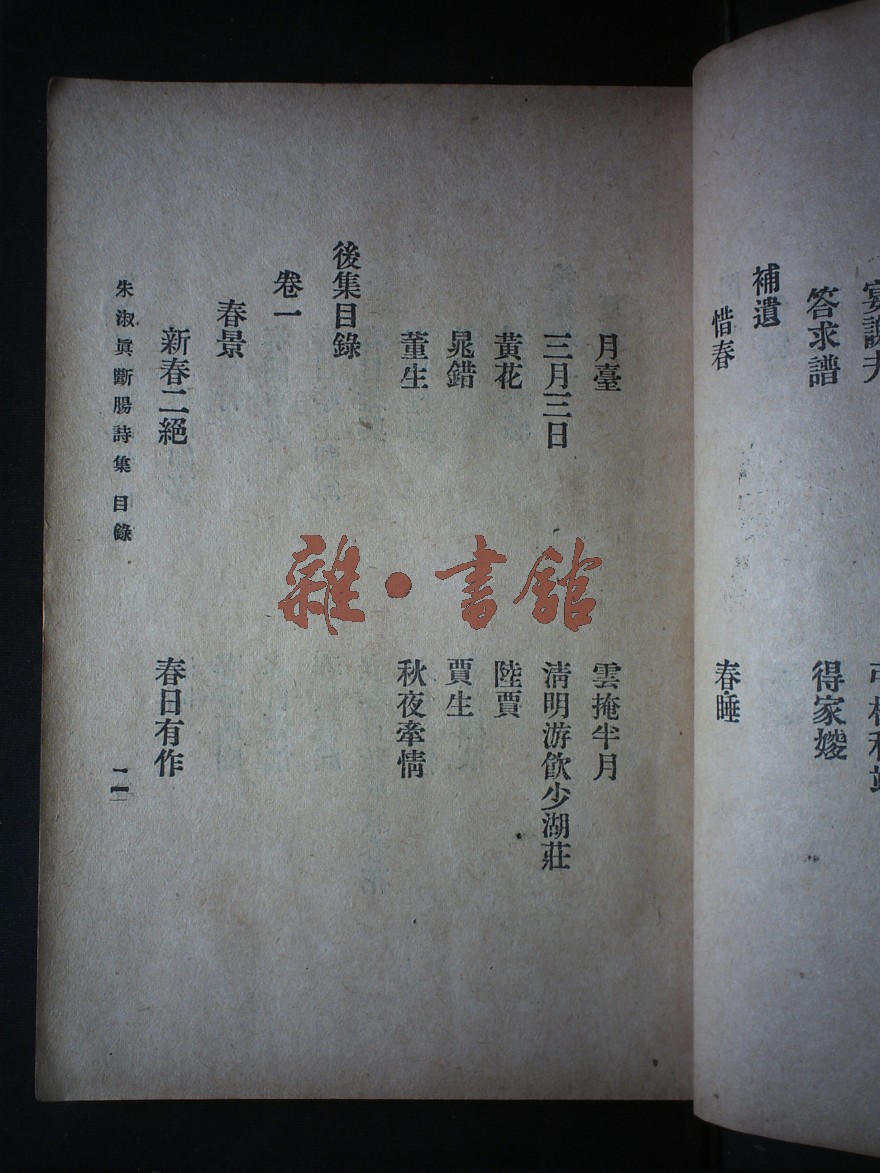 宴謝夫
弔林和靖
答求譜
得家嫂
補遺
惜春
春睡
月臺
雲掩半月
三月三日
淸明游飮少湖莊
黃花
陸賈
晁錯
賈生
董生
秋夜牽情
後集目錄
卷一
春景
新春二絕
春日有作
朱淑眞斷腸詩集 目錄
雜·書館